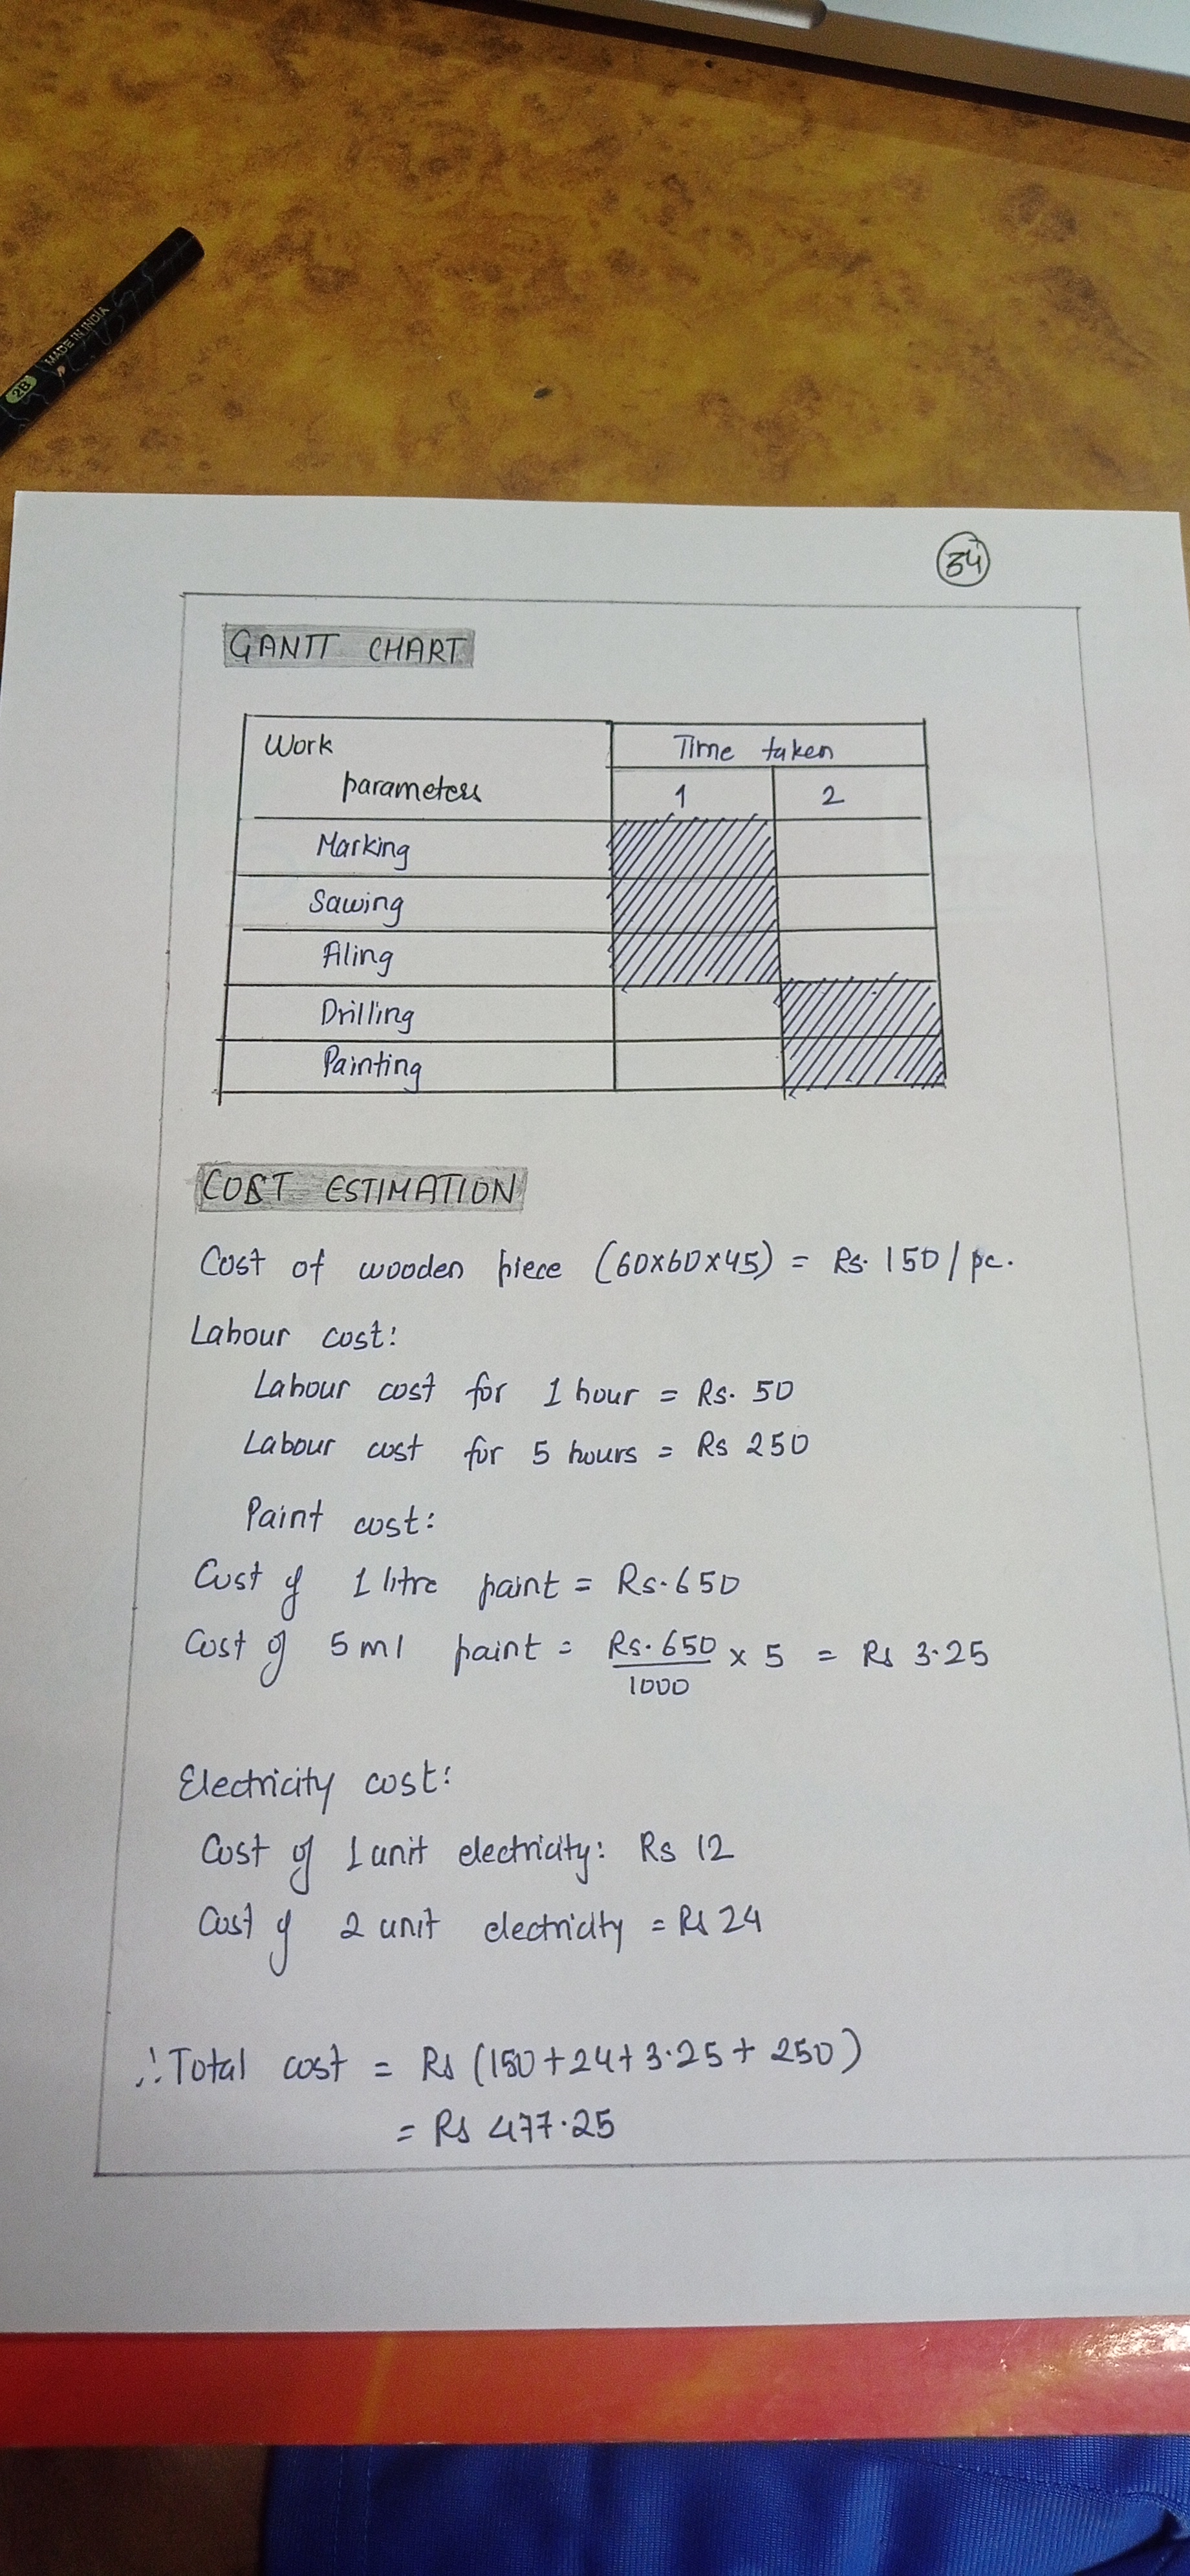 2B MADE IN INDIA
34
GANTT CHART
Work
parameters
Time taken
1 2
Marking
Sawing
Filing
Drilling
Painting
COST ESTIMATION
Cost of wooden piece (60x60x45) = Rs. 150/pc.
Labour cost:
Labour cost for 1 hour = Rs. 50
Labour cost for 5 hours = Rs 250
Paint cost:
Cost of 1 litre paint = Rs. 650
Cost of 5 ml paint = Rs. 650/1000 x 5 = Rs 3.25
Electricity cost:
Cost of 1 unit electricity: Rs 12
Cost of 2 unit electricity = Rs 24
∴ Total cost = Rs (150+24+3.25+250)
= Rs 477.25